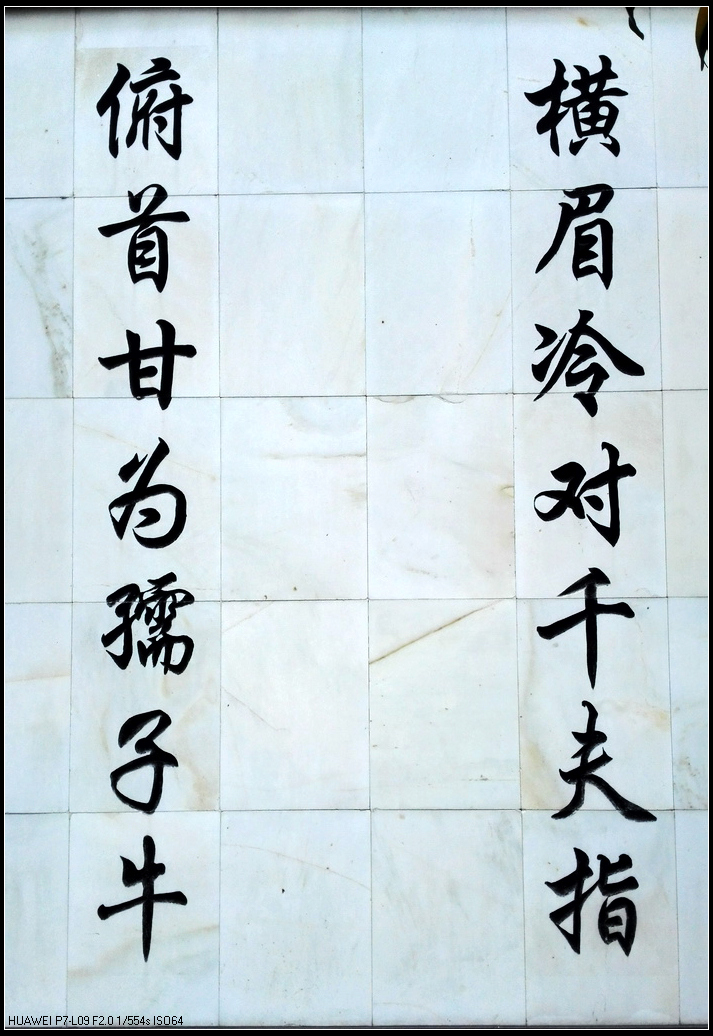 横眉冷对千夫指
俯首甘为孺子牛
HUAWEI P7-L09 F2.0 1/554s ISO64